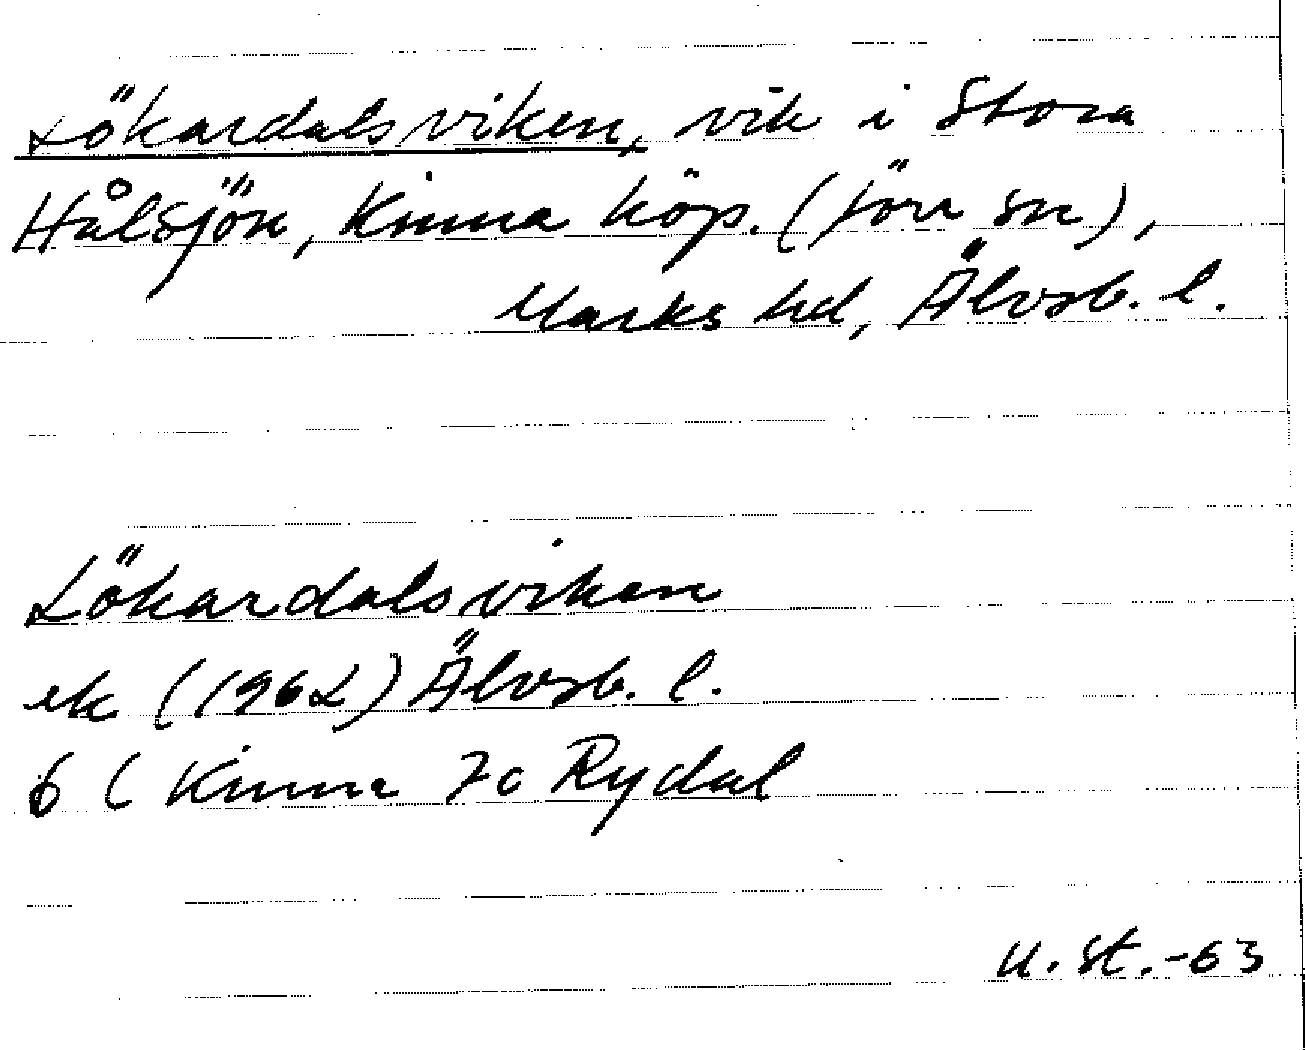 Lökardalsviken, vik i Stora
Hålsjön, Kinna köp. (förr sn),
Marks hd, Älvsb. l.
Lökardalsviken
ek (1962) Älvsb. l.
6 C Kinna 7c Rydal
U. St. -63